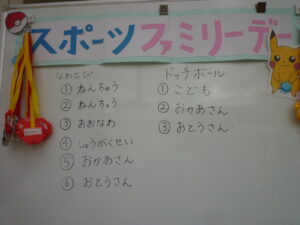 スポーツファミリーデー
なわとび
① ねんちゅう
② ねんちょう
③ おおなわ
④ しょうがくせい
⑤ おかあさん
⑥ おとうさん
ドッチボール
① こども
② おかあさん
③ おとうさん